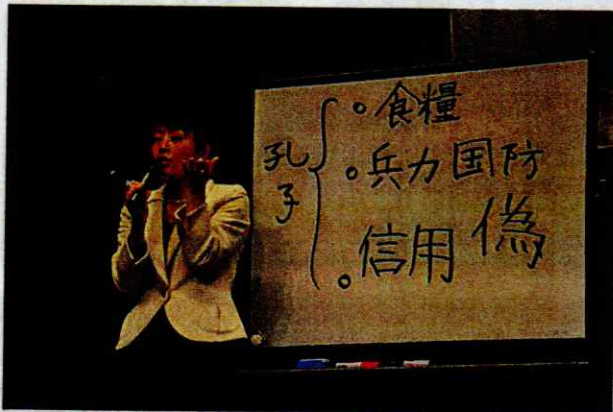 孔子
。食糧
。兵力国防
。信用 偽